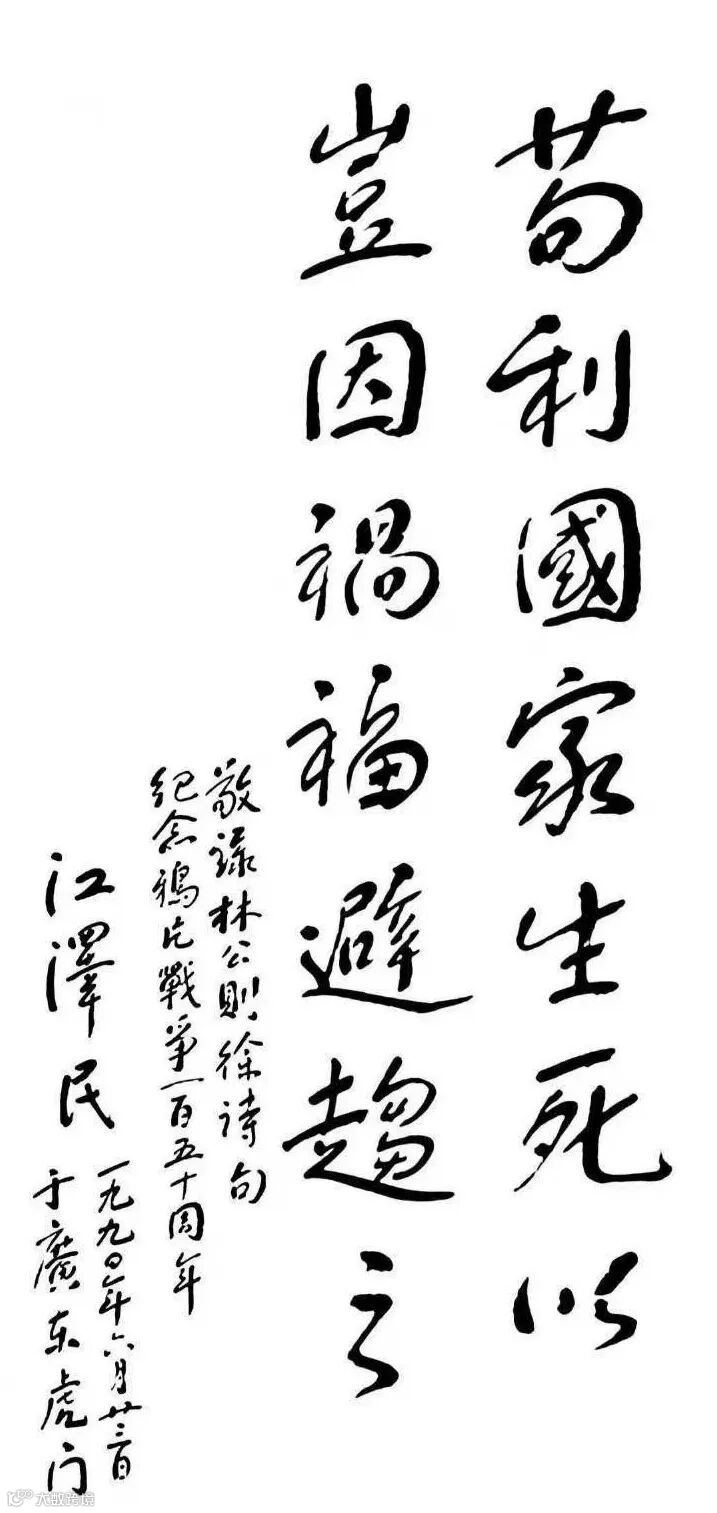 苟利國家生死以
豈因禍福避趨之
敬錄林公則徐詩句
紀念鴉片戰爭一百五十周年
江澤民
一九九〇年六月廿三日
于廣东虎门
大数跨境